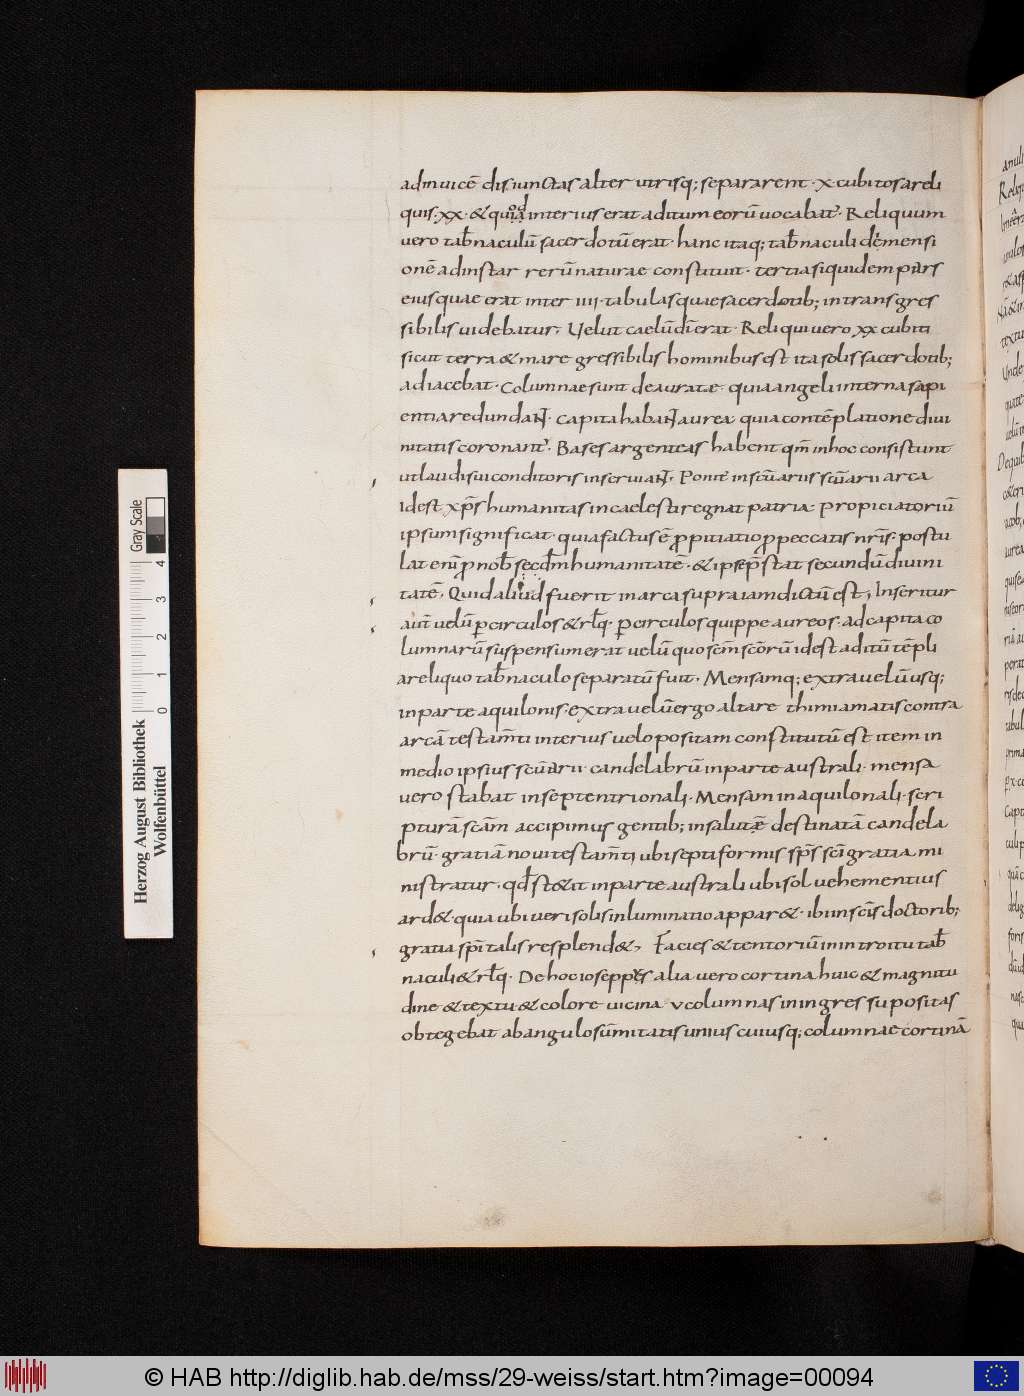 adinuicē disiunctas alter utrisq; separarent · x cubitos a reli
quis · xx · & quod interius erat aditum eorū uocabat · Reliquum
uero tab̄naculū sacerdotū erat · hanc itaq; tab̄naculi demensi
onē adinstar rerū naturae constituit · tertia siquidem pars
eius quae erat inter iiii · tabulas quae sacerdotib; intransgres
sibilis uidebatur, Uelut caelū dī erat · Reliqui uero xx cubiti
sicut terra & mare gressibilis hominibus est ita solis sacerdotib;
adiacebat · Columnae sunt deauratae quia angeli interna sapi
entia redundant · Capita habant aurea quia contēplatione diui
nitatis coronant · Bases argenteas habent qm̄ in hoc consistunt
ut laudi sui conditoris inseruiant, Ponit in scūariis scūarii arca
idest xp̄s humanitas in caelesti regnat patria propiciatoriū
ipsum significat · quia factus ē propitiatio pro peccatis nr̄is · postu
lat enī pro nob̄ secd̄m humanitatē · & ipse p̄stat secundū diuini
tatē, Quid aliud fuerit in arca supra iam dictū est, Inseritur
aūt uelū per circulos & rl̄q · per circulos quippe aureos · ad capita co
lumnarū suspensum erat uelū quo scm̄ scōrū idest aditū tēpli
a reliquo tab̄naculo separatū fuit, Mensamq; extra uelū usq;
in parte aquilonis · extra uelū ergo altare thimiamatis contra
arcā testam̄ti interius uelo positam constitutū est item in
medio ipsius scūarii candelabrū in parte australi · mensa
uero stabat in septentrionali · Mensam in aquilonali · scri
pturā scām accipimus gentib; in salutē destinatā candela
brū · gratiā noui testam̄ti ubi septiformis sp̄s sc̄i gratia mi
nistratur · qd̄ st&it in parte australi ubi sol uehementius
ard& · quia ubi ueri solis inluminatio appar& · ibi in sc̄is doctorib;
gratia sp̄italis resplend&, Facies & tentoriū in introitu tab̄
naculi & rl̄q · De hoc ioseppus alia uero cortina huic & magnitu
dine & textu & colore uicina v columnas in ingressu positas
obtegebat ab angulo sūmitatis unius cuiusq; columnae cortinā
Herzog August Bibliothek
Wolfenbüttel
0 1 2 3 4
Gray Scale
© HAB http://diglib.hab.de/mss/29-weiss/start.htm?image=00094